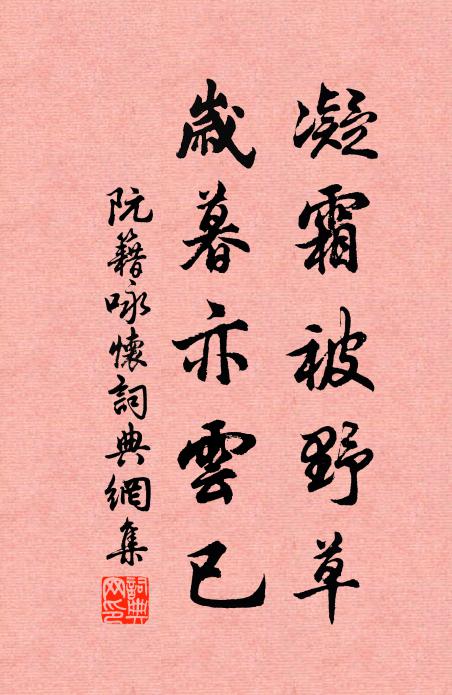 凝霜被野草
歲暮亦雲已
阮籍咏懷詞典網集
詞典網印